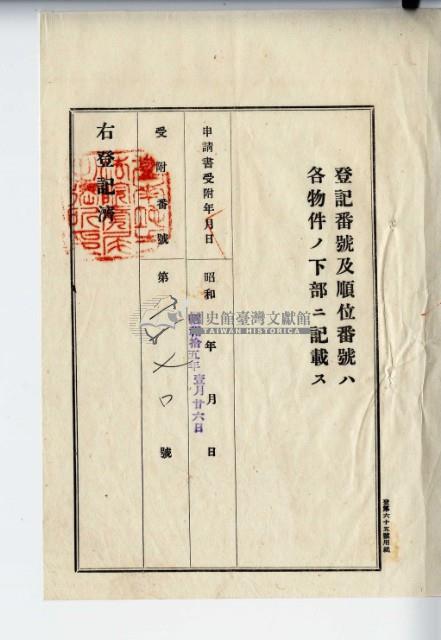 登記番號及順位番號ハ
各物件ノ下部ニ記載ス
申請書受附年月日
昭和 年 月 日
拾五年壹月廿六日
受附番號
第 號
右登記濟
史館臺灣文獻館
TAIWAN HISTORICA
登第六十五號用紙